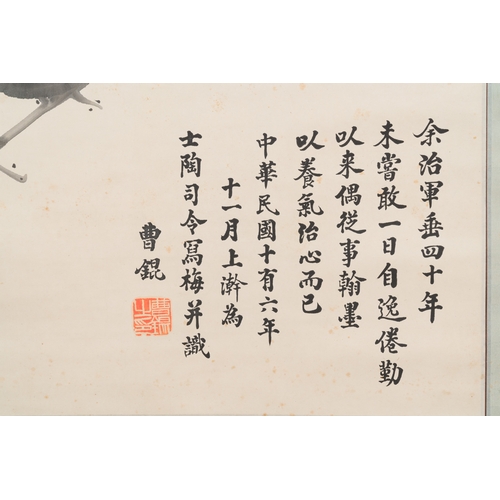 余治軍垂四十年
未嘗敢一日自逸倦勤
以来偶從事翰墨
以養氣治心而已
中華民國十有六年
十一月上澣為
士陶司令寫梅并識
曹錕
曹錕之印